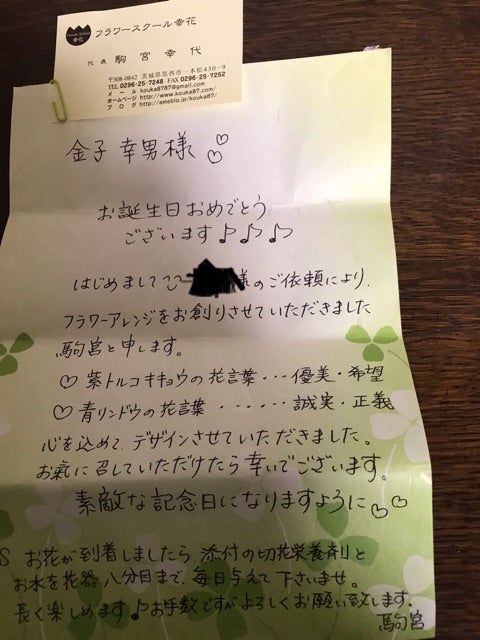 フラワースクール幸花
代表 駒宮幸代
〒308-0842 茨城県筑西市一本松430-9
TEL 0296-25-7248 FAX 0296-25-7252
メール kouka8787@gmail.com
ホームページ http://www.kouka87.com/
ブログ http://ameblo.jp/kouka87/
金子 幸男様♡♡
お誕生日おめでとう
ございます♪♪♪
はじめまして 様のご依頼により、
フラワーアレンジをお創りさせていただきました
駒宮と申します。
♡紫トルコキキョウの花言葉・・・優美・希望
♡青リンドウの花言葉・・・・・・誠実・正義
心を込めて、デザインさせていただきました。
お氣に召していただけたら幸いでございます。
素敵な記念日になりますように♡♡
S お花が到着しましたら、添付の切花栄養剤と
お水を花器八分目まで、毎日与えて下さいませ。
長く楽しめます♪お手数ですがよろしくお願い致します。
駒宮